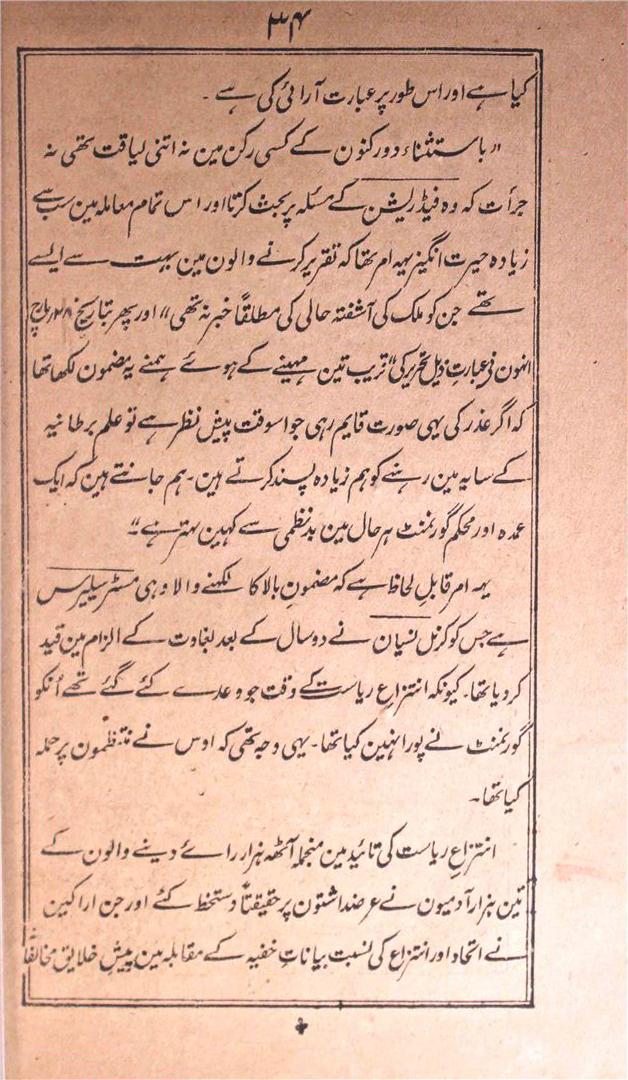 ۳۴
کیا ہے اور اس طور پر عبارت آرائی کی ہے ۔
"باستثناء دو رکنون کے کسی رکن مین نہ اتنی لیاقت تھی نہ
جرأت کہ وہ فیڈریشن کے مسئلہ پر بحث کرتا اور اس تمام معاملہ مین سب سے
زیادہ حیرت انگیز یہہ امر تھا کہ تقریر کرنے والون مین بہت سے ایسے
تھے جن کو ملک کی آشفتہ حالی کی مطلقاً خبر نہ تھی" اور پھر بتاریخ مارچ
انہون نے عبارت ذیل تحریر کی "قریب تین مہینے کے ہوئے ہمنے یہ مضمون لکھا تھا
کہ اگر غدر کی یہی صورت قایم رہی جو اسوقت پیش نظر ہے تو علم برطانیہ
کے سایہ مین رہنے کو ہم زیادہ پسند کرتے ہین ۔ ہم جانتے ہین کہ ایک
عمدہ اور محکم گورنمنٹ ہر حال مین بدنظمی سے کہین بہتر ہے"۔
یہہ امر قابلِ لحاظ ہے کہ مضمونِ بالا کا لکھنے والا وہی مسٹر سیلیرس
ہے جس کو کرنل لنسیان نے دو سال کے بعد بغاوت کے الزام مین قید
کر دیا تھا ۔ کیونکہ انتزاعِ ریاست کے وقت جو وعدے کئے گئے تھے اُنکو
گورنمنٹ نے پورا نہین کیا تھا ۔ یہی وجہ تھی کہ اوس نے منتظمون پر حملہ
کیا تھا ۔
انتزاعِ ریاست کی تائید مین منجملہ آٹھہ ہزار رائے دینے والون کے
تین ہزار آدمیون نے عرضداشتون پر حقیقتاً دستخط کئے اور جن اراکین
نے اتحاد اور انتزاع کی نسبت بیاناتِ خفیہ کے مقابلہ مین پیش خلایق مخالفاً